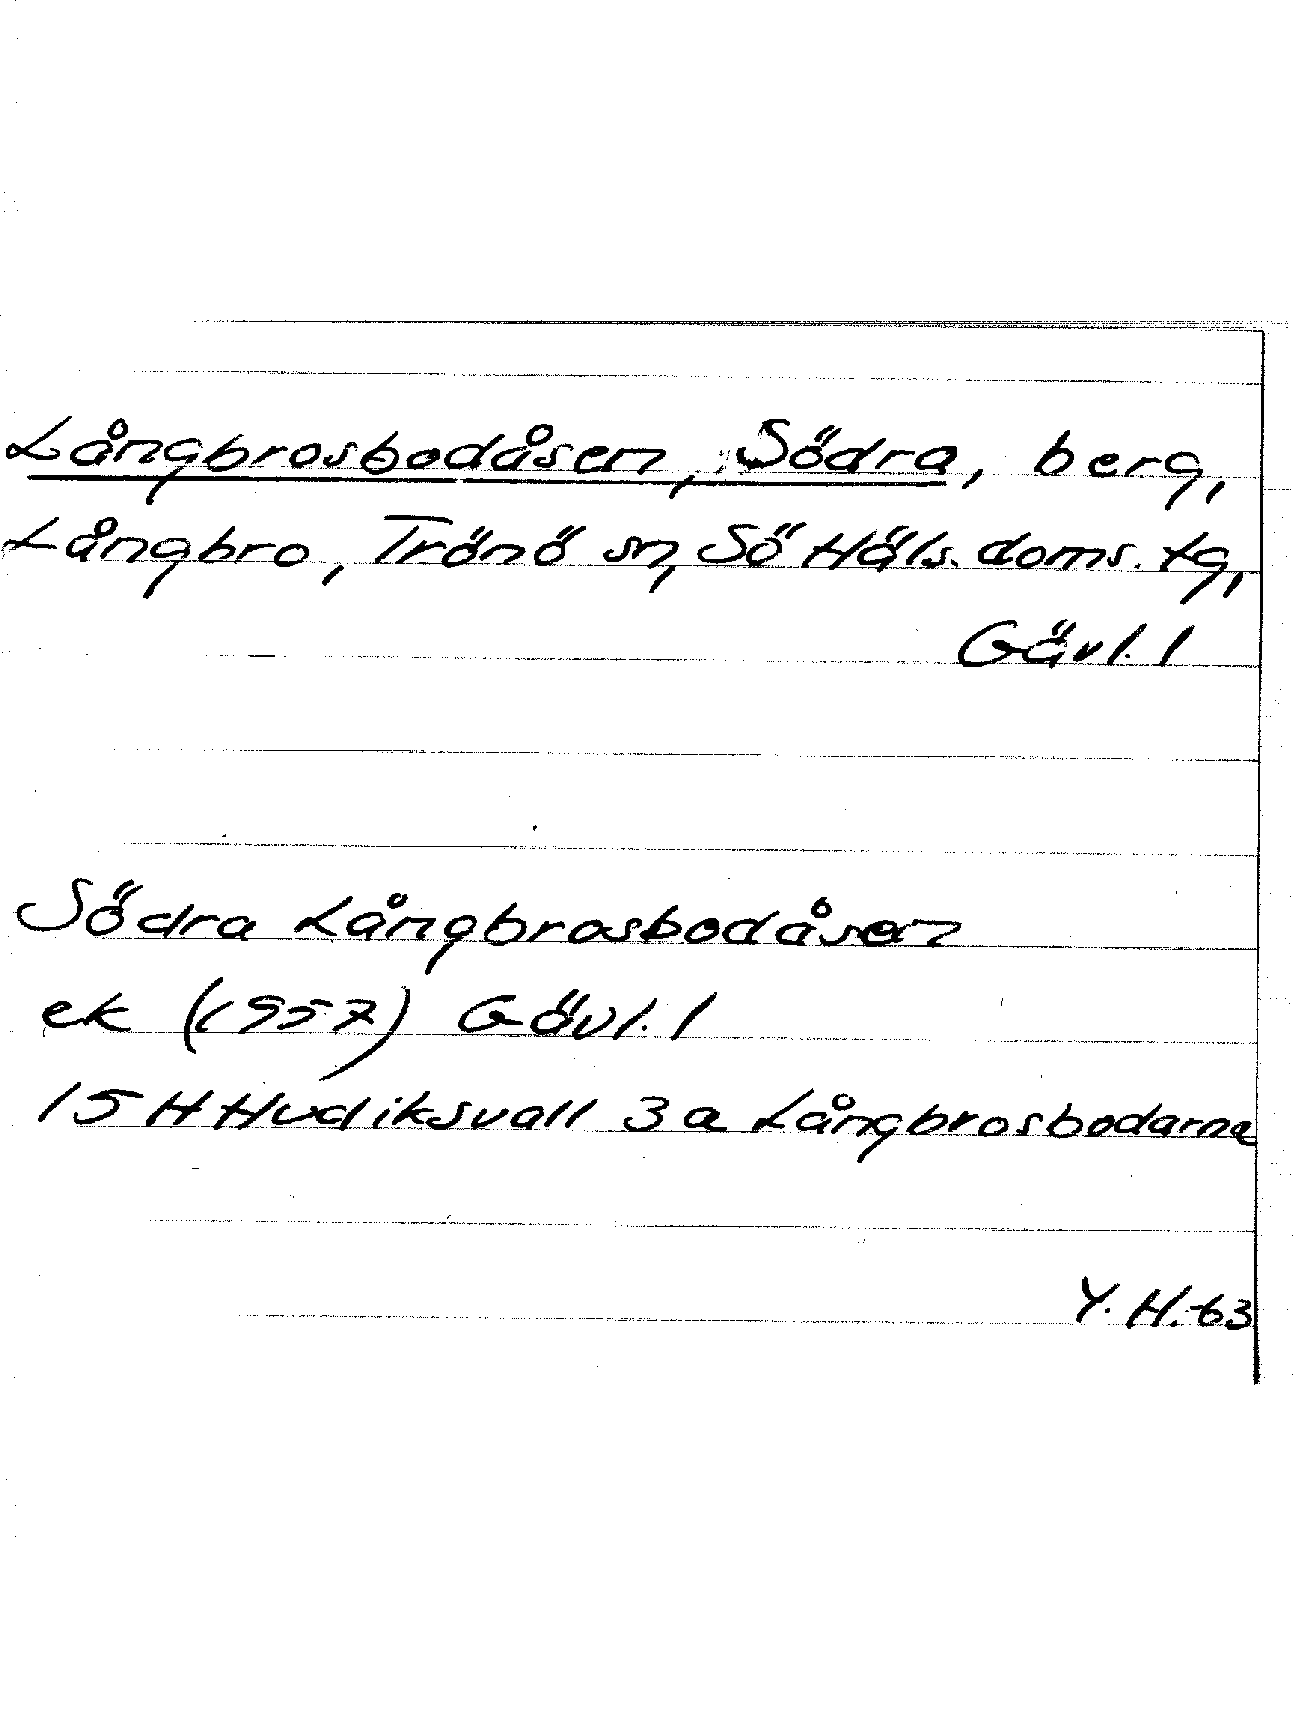 Långbrosbodåsen, Södra, berg,
Långbro, Trönö sn, Sö Häls. doms. tg,
Gävl. l
Södra Långbrosbodåsen
ek (1957) Gävl. l
15 H Hudiksvall 3a Långbrosbodarna
Y. H. 63